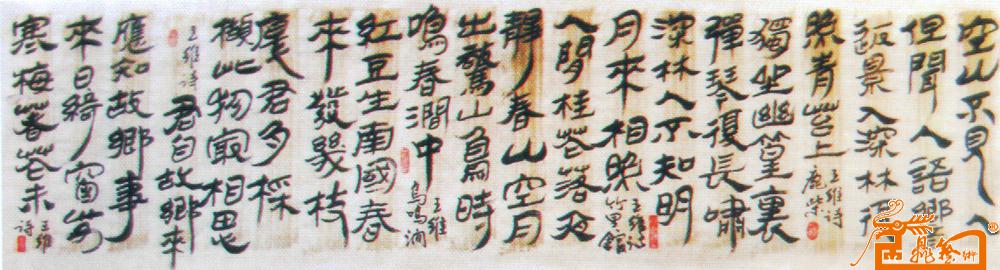 空山不見人
但聞人語響
返景入深林復
照青苔上
王維詩
鹿柴
獨坐幽篁裏
彈琴復長嘯
深林人不知明
月來相照
王維詩
竹里館
人閒桂花落夜
靜春山空月
出驚山鳥時
鳴春澗中
王維
鳥鳴澗
紅豆生南國春
來發幾枝
君多採
擷此物最相思
王維詩
君自故鄉來
應知故鄉事
來日綺窗前
寒梅著花未
王維
詩